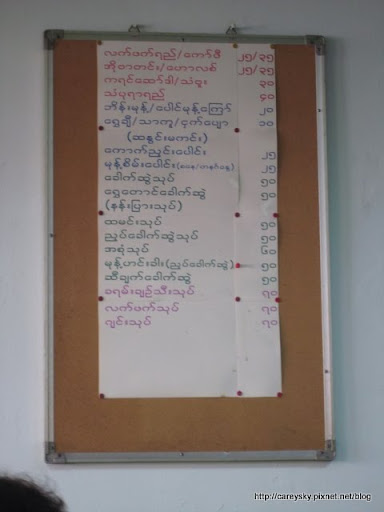 လက်ဖက်ရည်/ကော်ဖီ ၂၅/၃၅
အိုဗာတင်း/ဟောလစ် ၂၅/၃၅
ကရင်ဆော်ဒါ/သံဗူး ၃၀
သံပုရာရည် ၄၀
ဘိန်းမုန့်/ပေါင်မုန့်ကြော် ၂၀
ရွှေချီ/သာကူ/ငှက်ပျော ၁၀
(ဆနွင်းမကင်း)
ကောက်ညှင်းပေါင်း ၂၅
မုန့်စိမ်းပေါင်း ၂၅
ခေါက်ဆွဲသုပ် ၅၀
ရွှေတောင်ခေါက်ဆွဲ ၅၀
(နန်းပြားသုပ်)
ထမင်းသုပ် ၅၀
ညှပ်ခေါက်ဆွဲသုပ် ၅၀
အစုံသုပ် ၆၀
မုန့်ဟင်းခါး(ညှပ်ခေါက်ဆွဲ) ၅၀
ဆီချက်ခေါက်ဆွဲ ၅၀
ခရမ်းချဉ်သီးသုပ် ၇၀
လက်ဖက်သုပ် ၇၀
ဂျင်းသုပ် ၇၀
http://careysky.pixnet.net/blog